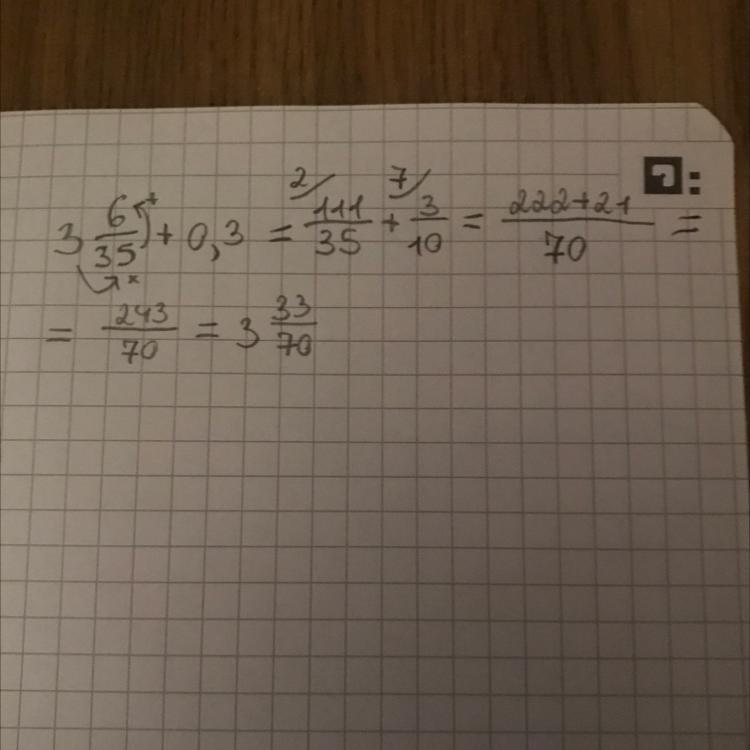 3 6/35 + 0,3 = 111/35 + 3/10 = 222+21/70 =
= 243/70 = 3 33/70